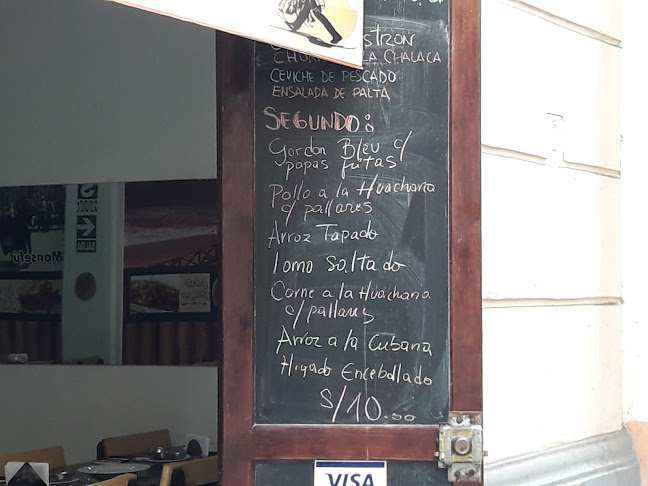 LA CHALACA
CEVICHE DE PESCADO
ENSALADA DE PALTA
SEGUNDO:
Gordon Bleu c/
papas fritas
Pollo a la Huachana
c/ pallares
Arroz Tapado
lomo Saltado
Carne a la Huachana
c/ pallares
Arroz a la Cubana
Higado Encebollado
S/10.00
VISA
Monsefú
SALIDA